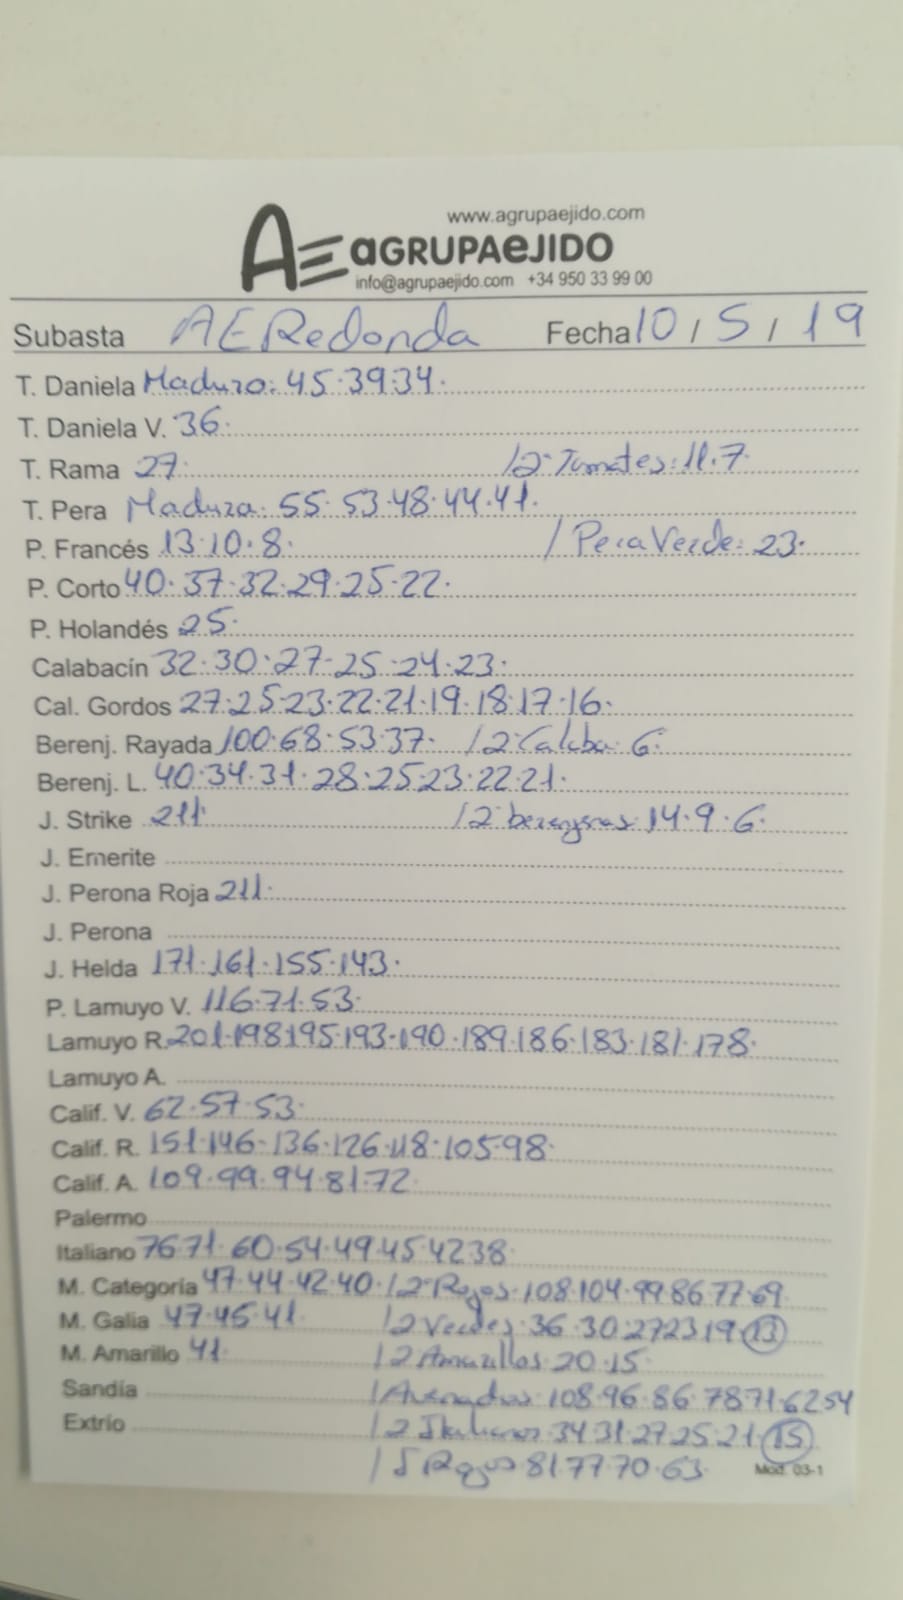 www.agrupaejido.com
AE aGRUPAeJIDO
info@agrupaejido.com +34 950 33 99 00
Subasta AERedonda Fecha 10 / 5 / 19
T. Daniela Maduro: 45.39.34.
T. Daniela V. 36.
T. Rama 27. /2ª Tomates: 11.7
T. Pera Madura: 55.53.48.44.41.
P. Francés 13.10.8. / Pera Verde: 23.
P. Corto 40.37.32.29.25.22.
P. Holandés 25.
Calabacín 32.30.27.25.24.23.
Cal. Gordos 27.25.23.22.21.19.18.17.16.
Berenj. Rayada 100.68.53.37. /2ª Calaba. 6.
Berenj. L. 40.34.31.28.25.23.22.21.
J. Strike 211. /2ª berenjenas 14.9.6.
J. Emerite
J. Perona Roja 211.
J. Perona
J. Helda 171.161.155.143.
P. Lamuyo V. 116.71.53.
Lamuyo R. 201.198.195.193.190.189.186.183.181.178.
Lamuyo A.
Calif. V. 62.57.53.
Calif. R. 151.146.136.126.118.105.98.
Calif. A. 109.99.94.81.72.
Palermo
Italiano 76.71.60.54.49.45.42.38.
M. Categoría 47.44.42.40. /2ª Rojos. 108.104.99.86.77.69.
M. Galia 47.45.41. /2 Verdes. 36.30.27.23.19.13
M. Amarillo 41. /2 Amarillos. 20.15.
Sandía /Asurcados 108.96.86.78.71.62.54
Extrío /2 Italianos 34.31.27.25.21.15
/5 Rojos 81.77.70.63. Mod. 03-1